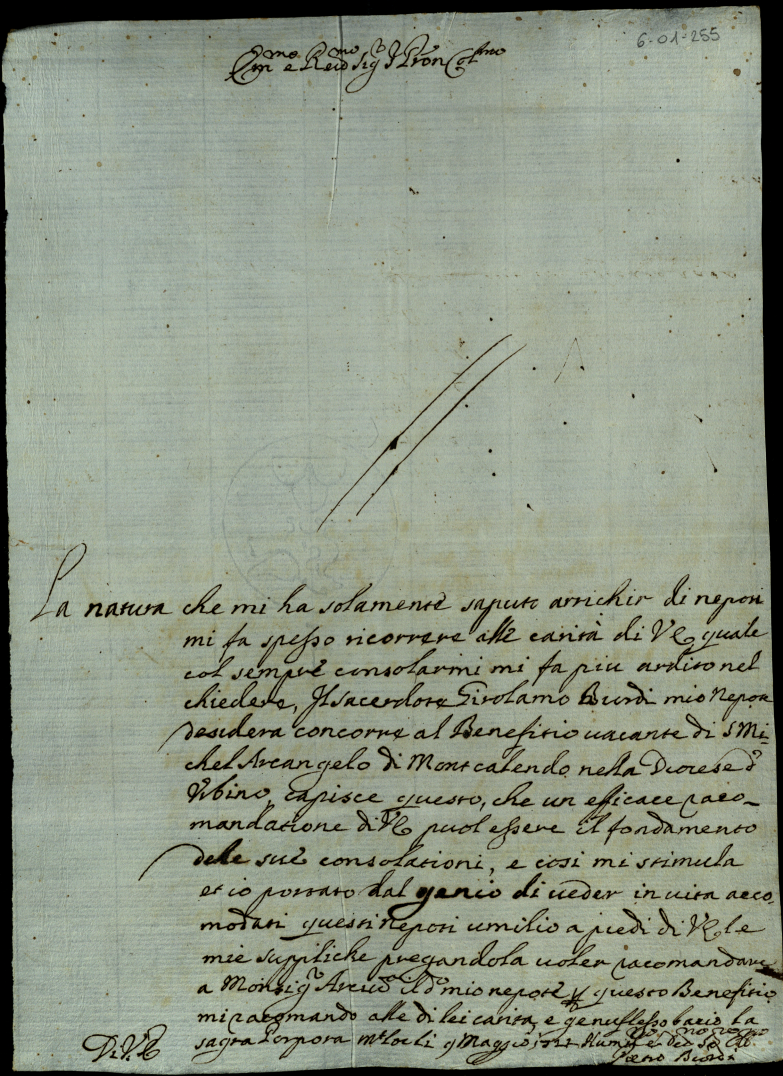 6-01-255
Em.mo e Re.mo Sig.r Pron Col.mo
La natura che mi ha solamente saputo arrichir di nepoti
mi fa spesso ricorrere alle carità di VE quale
col sempre consolarmi mi fa piu ardito nel
chiedere, Il sacerdote Girolamo Burdi mio Nepote
desidera concorre al Benefitio vacante di S Mi-
chel Arcangelo di Montcalendo nella Diocese d'
Urbino, capisce questo, che un efficace raco-
mandatione di VE puol essere il fondamento
dele sue consolationi, e così mi stimula
et io portato dal genio di veder in vita acco
modati questi nepoti umilio a piedi di VE le
mie suppliche pregandola voler racomandare
a Monsig.r Arciv.o il d.o mio nepote p questo Benefitio
mi racomando alle di lei carità, e genuflesso bacio la
sagra Porpora li 9 Maggio
Di VE
Pietro Burdi